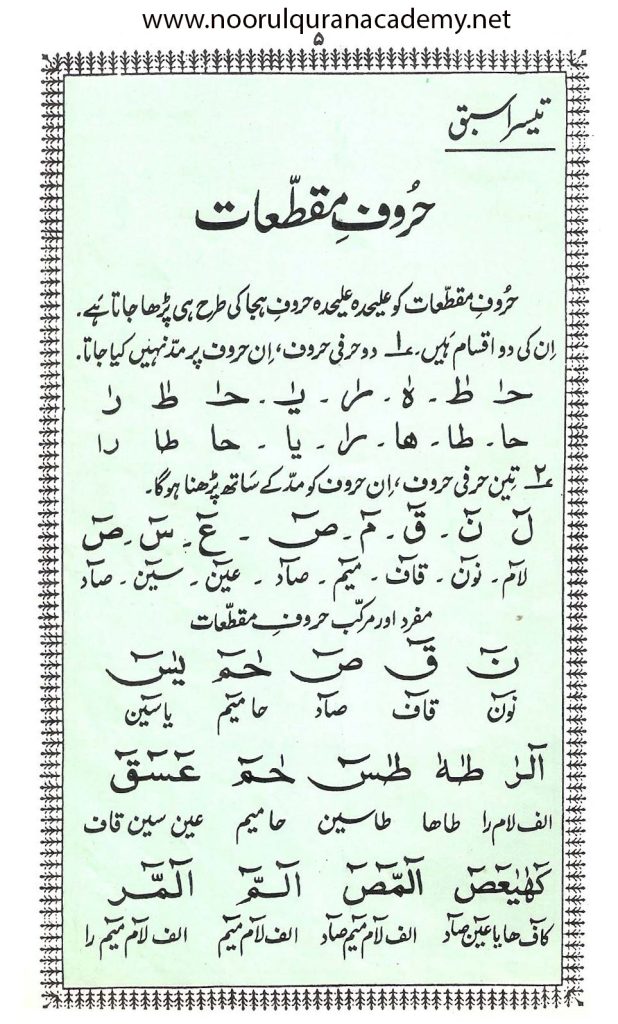 www.noorulquranacademy.net
۵
تیسرا سبق
حُروفِ مقطّعات
حُروفِ مقطّعات کو علیحدہ علیحدہ حروفِ ہجا کی طرح ہی پڑھا جاتا ہے۔
اِن کی دو اقسام ہیں۔ ۱؎ دو حرفی حروف، اِن حروف پر مدّ نہیں کیا جاتا۔
حٰ۔ طٰ۔ هٰ۔ رٰ۔ یٰ۔ حٰ طٰ رٰ
حا۔ طا۔ ها۔ را۔ یا۔ حا طا را
۲؎ تین حرفی حروف، اِن حروف کو مدّ کے سَاتھ پڑھنا ہوگا۔
لٓ نٓ۔ قٓ۔ مٓ۔ صٓ ۔ عٓ۔ سٓ۔ صٓ
لآم۔ نوٓن۔ قآف۔ میٓم۔ صآد ۔ عیٓن۔ سیٓن۔ صآد
مفرد اور مرکّب حروفِ مقطّعات
نٓ قٓ صٓ حٰمٓ یٰسٓ
نوٓن قآف صآد حا میٓم یا سیٓن
الٓرٰ طٰهٰ طٰسٓ حٰمٓ عٓسٓقٓ
الف لآم را طا ها طا سیٓن حا میٓم عیٓن سیٓن قآف
کٓهٰیٰعٓصٓ الٓمّٓصٓ الٓمّٓ الٓمّٓرٰ
کآف ها یا عیٓن صآد الف لآم میٓم صآد الف لآم میٓم الف لآم میٓم را